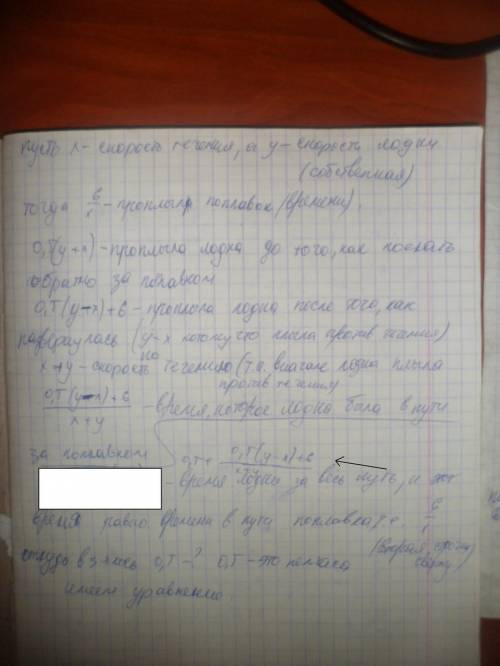 пусть x - скорость течения, а y - скорость лодки
(собственная)
тогда 6/x - проплыл поплавок (времени).
0,7(y+x) - проплыла лодка до того, как поехать
обратно за поплавком
0,7(y-x)+6 - проплыла лодка после того, как
развернулась (y-x потому что плыла против течения)
x+y - скорость по течению (т.к. вначале лодка плыла
против течения
(0,7(y-x)+6)/(x+y) - время, которое лодка была в пути
за поплавком
0,7 + (0,7(y-x)+6)/(x+y)
- время лодки за весь путь, и это
время равно времени в пути поплавка т.е. 6/x
(вторая строчка
сверху)
откуда взялись 0,7 - ? 0,7 - это
имеем уравнение.